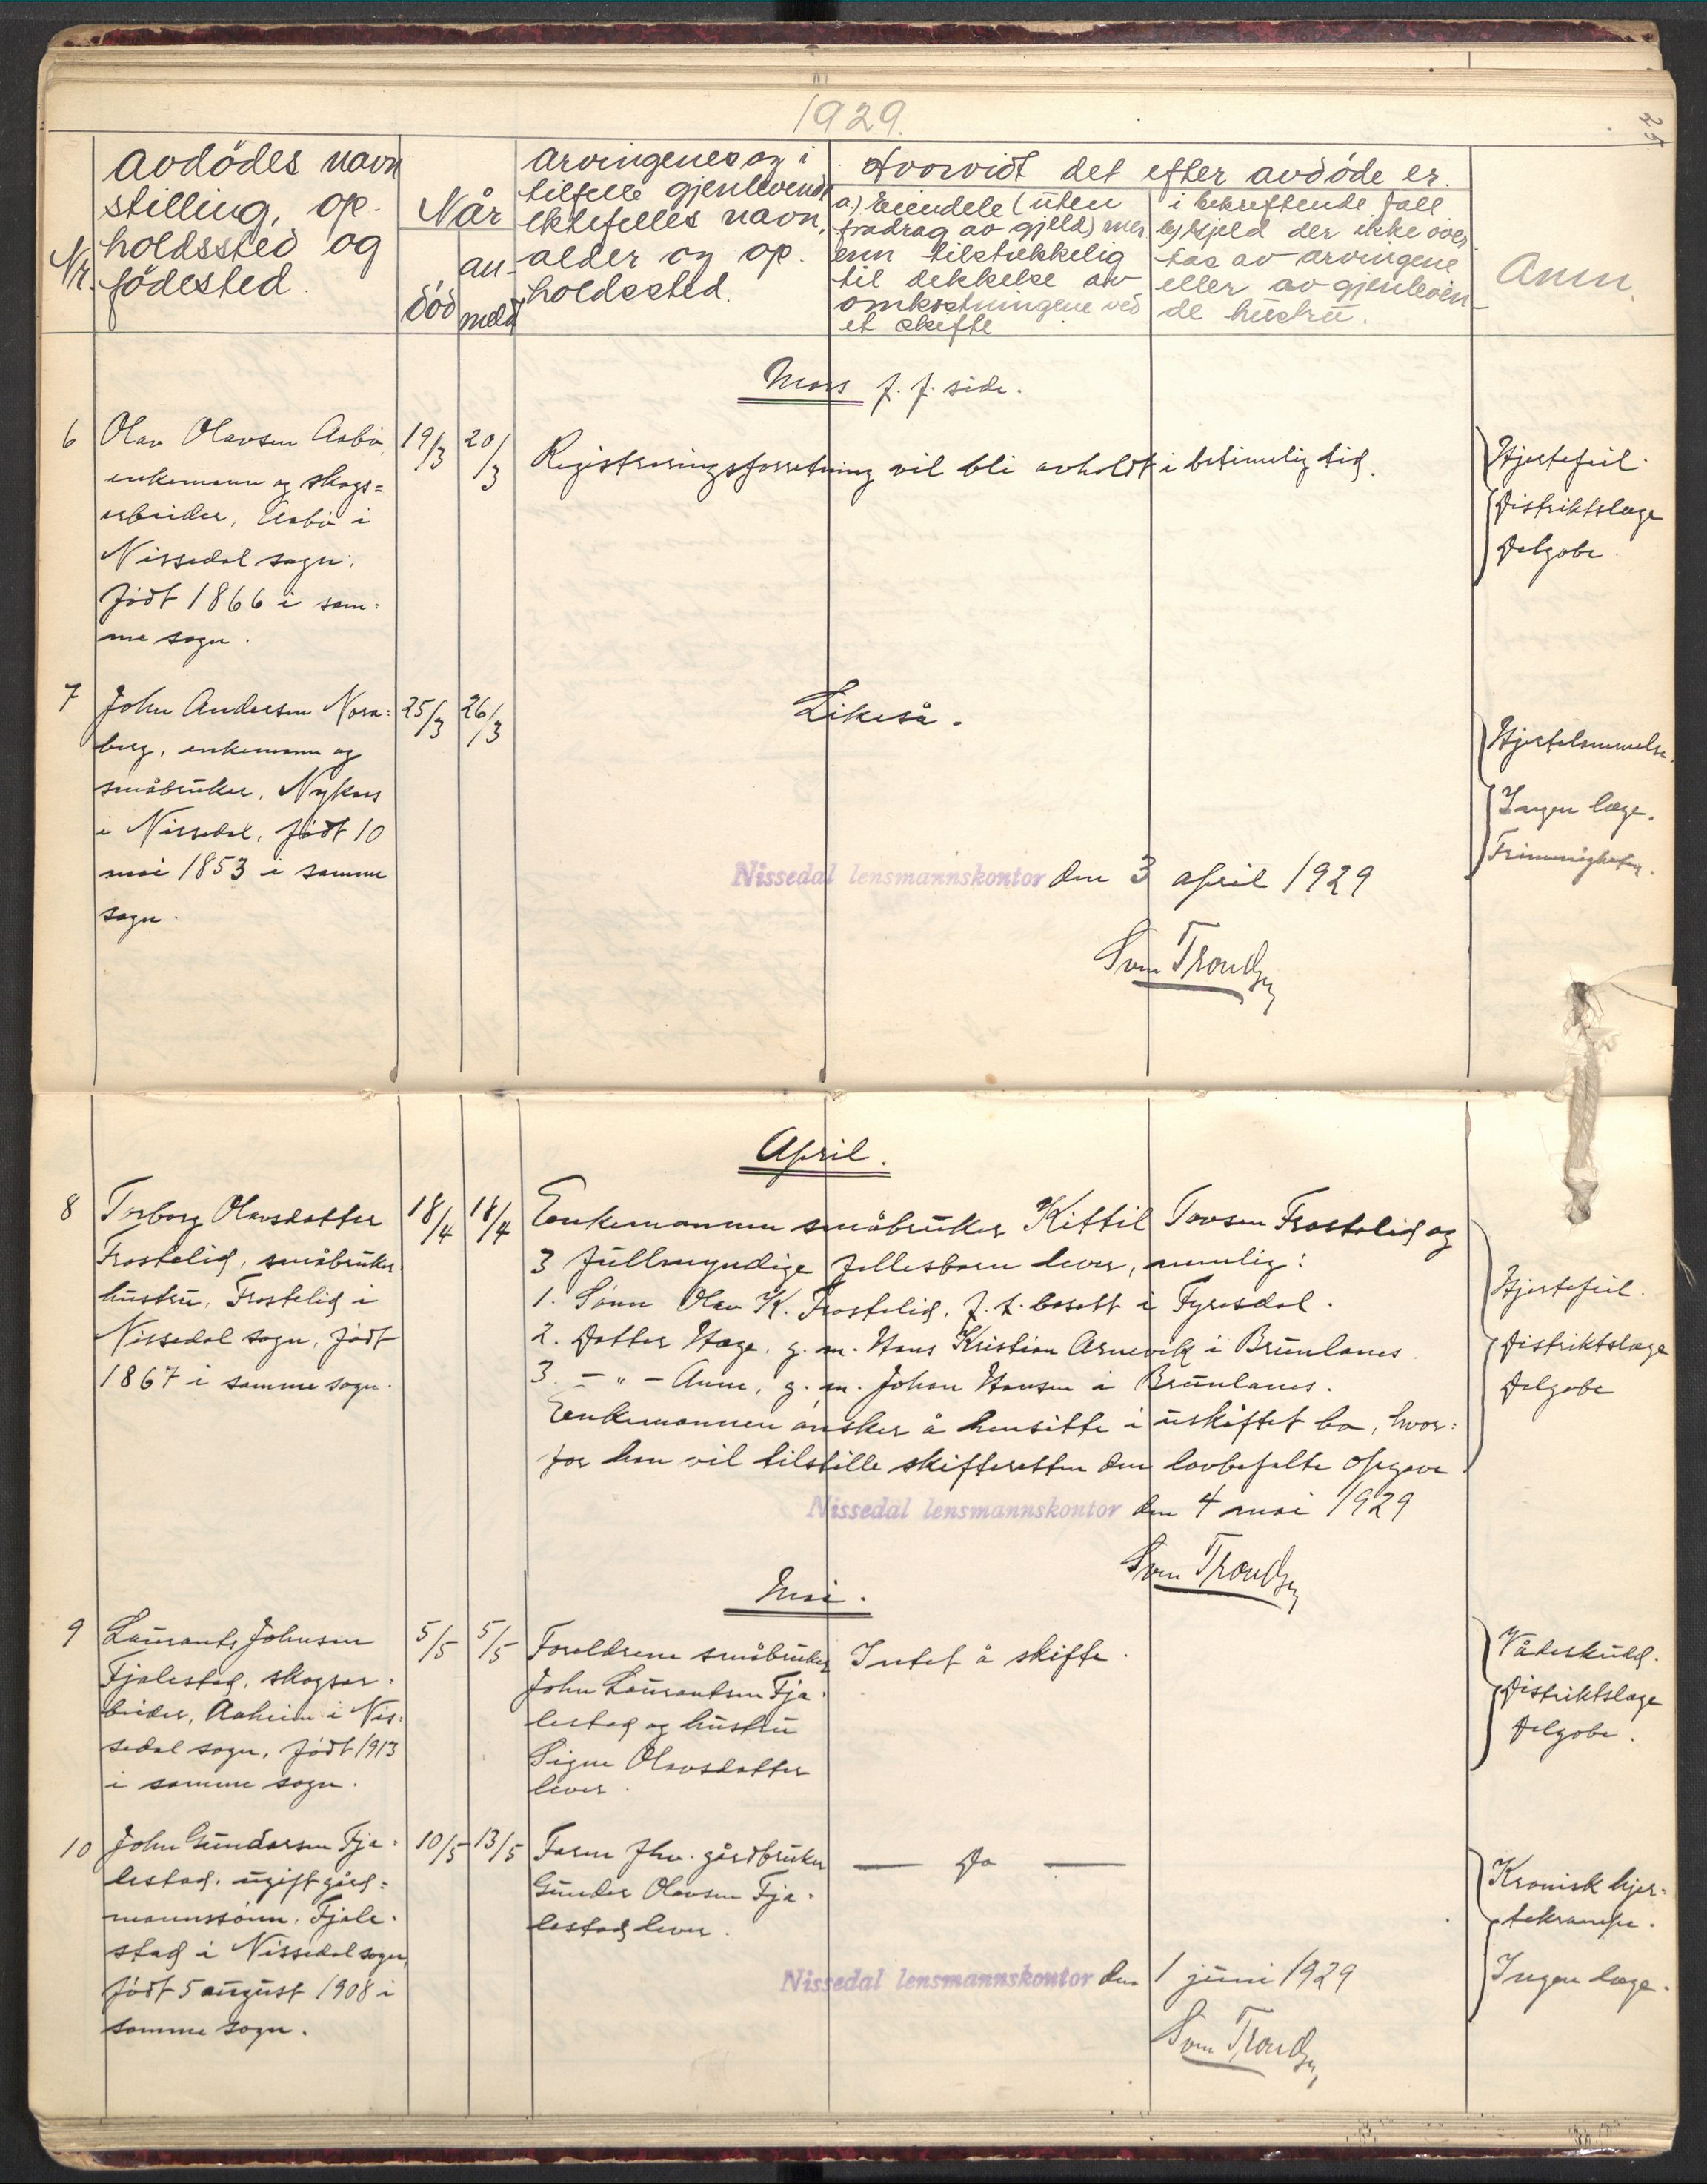 1929.
25
Nr.
Avdödes navn
stilling, op-
holdssted og
födested.
Når
död
an-
meldt
Arvingenes og i
tilfelle gjenlevende
ektefelles navn,
alder og op-
holdssted.
Hvorvidt det efter avdöde er.
a.) Eiendele (uten
fradrag av gjeld) mer
enn tilstrekkelig
til dekkelse av
omkostningene ved
et skifte
i bekreftende fall
b) Gjeld der ikke over
tas av arvingene
eller av gjenleven-
de hustru.
Anm.
Mars f. f. side.
6
Olav Olavsen Aasbö,
enkemann og skogs=
arbeider, Aasbö i
Nissedal sogn,
født 1866 i sam=
me sogn.
19/3
20/3
Registreringsforretning vil bli avholdt i betimelig tid.
Hjertefeil.
Distriktslæge
Dalgobe.
7
John Andersen Nora=
berg, enkemann og
småbruker, Nykaas
i Nissedal, født 10
mai 1853 i samme
sogn.
25/3
26/3
Likeså.
Hjertelammelse.
Ingen læge.
Nissedal lensmannskontor den 3 april 1929
Sven Trondsen
April.
8
Torborg Olavsdatter
Frostelid, småbruker
hustru, Frostelid i
Nissedal sogn, født
1867 i samme sogn.
18/4
18/4
Enkemannen småbruker Kittil Tovsen Frostelid og
3 fullmyndige fellesbarn lever, nemlig:
1. Sönn Olav K. Frostelid, f. t. bosatt i Fyresdal.
2. Datter Hæge, g. m. Hans Kristian Arnevik i Brunlanes.
3. — " — Anne, g. m. Johan Hansen i Brunlanes.
Enkemannen önsker å hensitte i uskiftet bo, hvor=
for han vil tilstille skifteretten den lovbefalte opgave
Hjertefeil.
Distriktslæge
Dalgobe
Nissedal lensmannskontor den 4 mai 1929
Sven Trondsen
Mai.
9
Laurants Johnsen
Fjalestad, skogsar-
beider, Aaheim i Nis=
sedal sogn, født 1913
i samme sogn.
5/5
5/5
Foreldrene småbruker
John Laurantsen Fja-
lestad og hustru
Signe Olavsdatter
lever.
Intet å skifte.
Vådeskudd.
Distriktslæge
Dalgobe.
10
John Gundersen Fja-
lestad, ugift gård=
mannssönn, Fjale-
stad i Nissedal sogn,
født 5 august 1908 i
samme sogn.
10/5
13/5
Faren fhv. gårdbruker
Gunder Olavsen Fja-
lestad lever.
— Do —
Kronisk hjer-
tekrampe.
Ingen læge.
Nissedal lensmannskontor den 1 juni 1929
Sven Trondsen